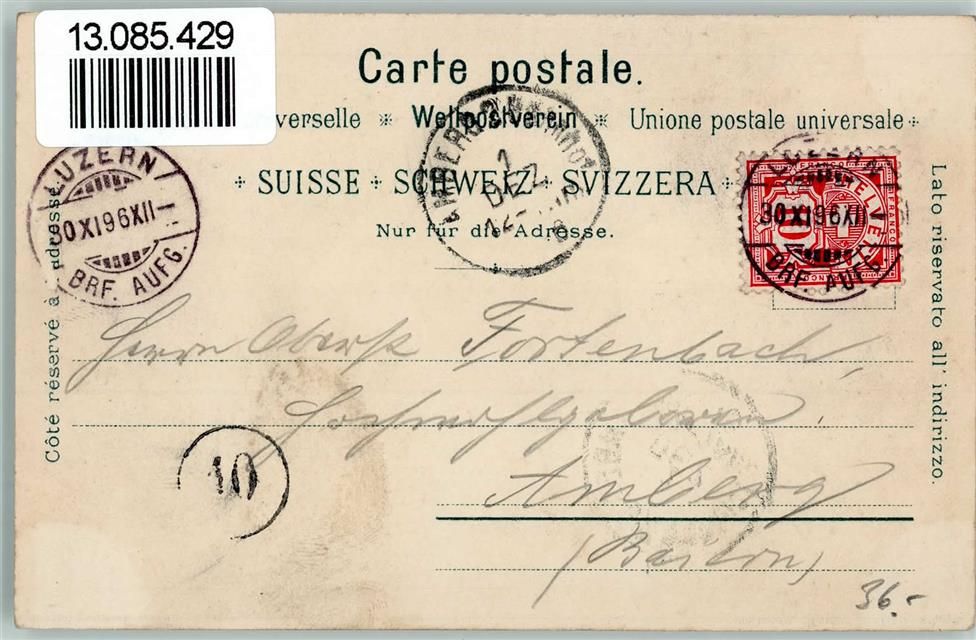 13.085.429
Carte postale.
verselle * Weltpostverein * Union postale universale
SUISSE + SCHWEIZ + SVIZZERA
Nur für die Adresse.
Côté réservé à adresse
Lato riservato all' indirizzo.
LUZERN
30 XI 96 XII
BRF. AUFG.
AMBERG Bahnhof
DEZ
HELVETIA
10
30 XI 96 XII
BRF. AUFG.
Herrn Oberst Fortenbach,
Hochwohlgeboren
10
Amberg
(Baiern)
36.-